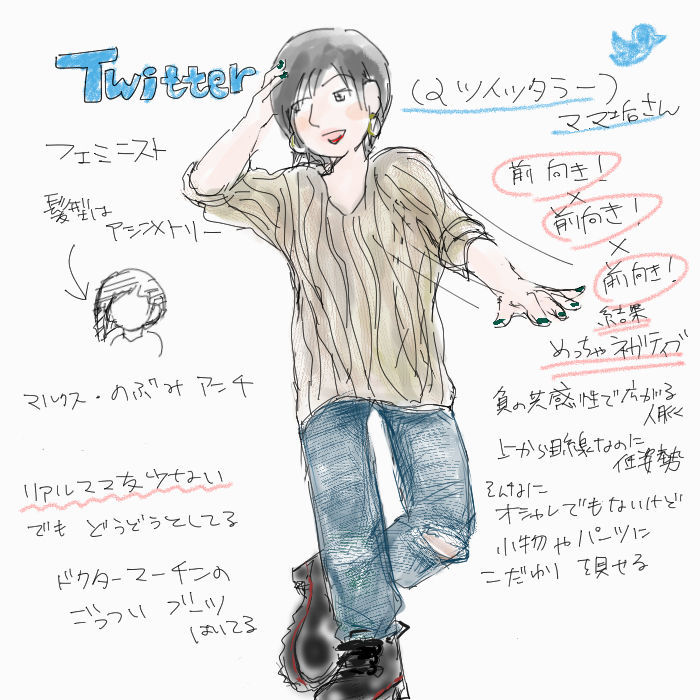 Twitter
(≒ツイッタラー)
ママ垢さん
フェミニスト
髪型は
アシンメトリー
マルクス・のぶみ アンチ
リアルママ友少ない
でも どうどうとしてる
ドクターマーチンの
ごつい ブーツ
はいてる
前向き!
×
前向き!
×
前向き!
結果
めっちゃネガティブ
負の共感性で広がる
人脈
上から目線なのに
低姿勢
そんなに
オシャレでもないけど
小物やパーツに
こだわり を見せる